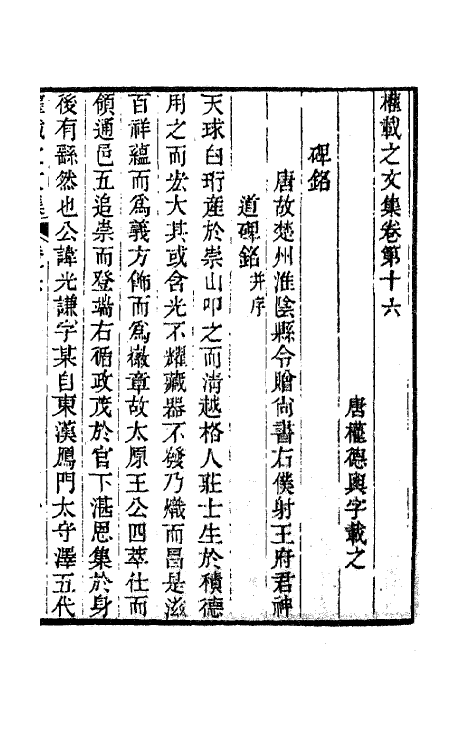 權載之文集卷第十六
唐權德輿字載之
碑銘
唐故楚州淮陰縣令贈尚書右僕射王府君神
道碑銘并序
天球白珩産於崇山叩之而清越格人莊士生於積德
用之而宏大其或含光不耀藏器不發乃熾而昌是滋
百祥蘊而爲義方佈而爲徽章故太原王公四莅仕而
領通邑五追崇而登端右循政茂於官下湛恩集於身
後有繇然也公諱光謙字某自東漢鴈門太守澤五代